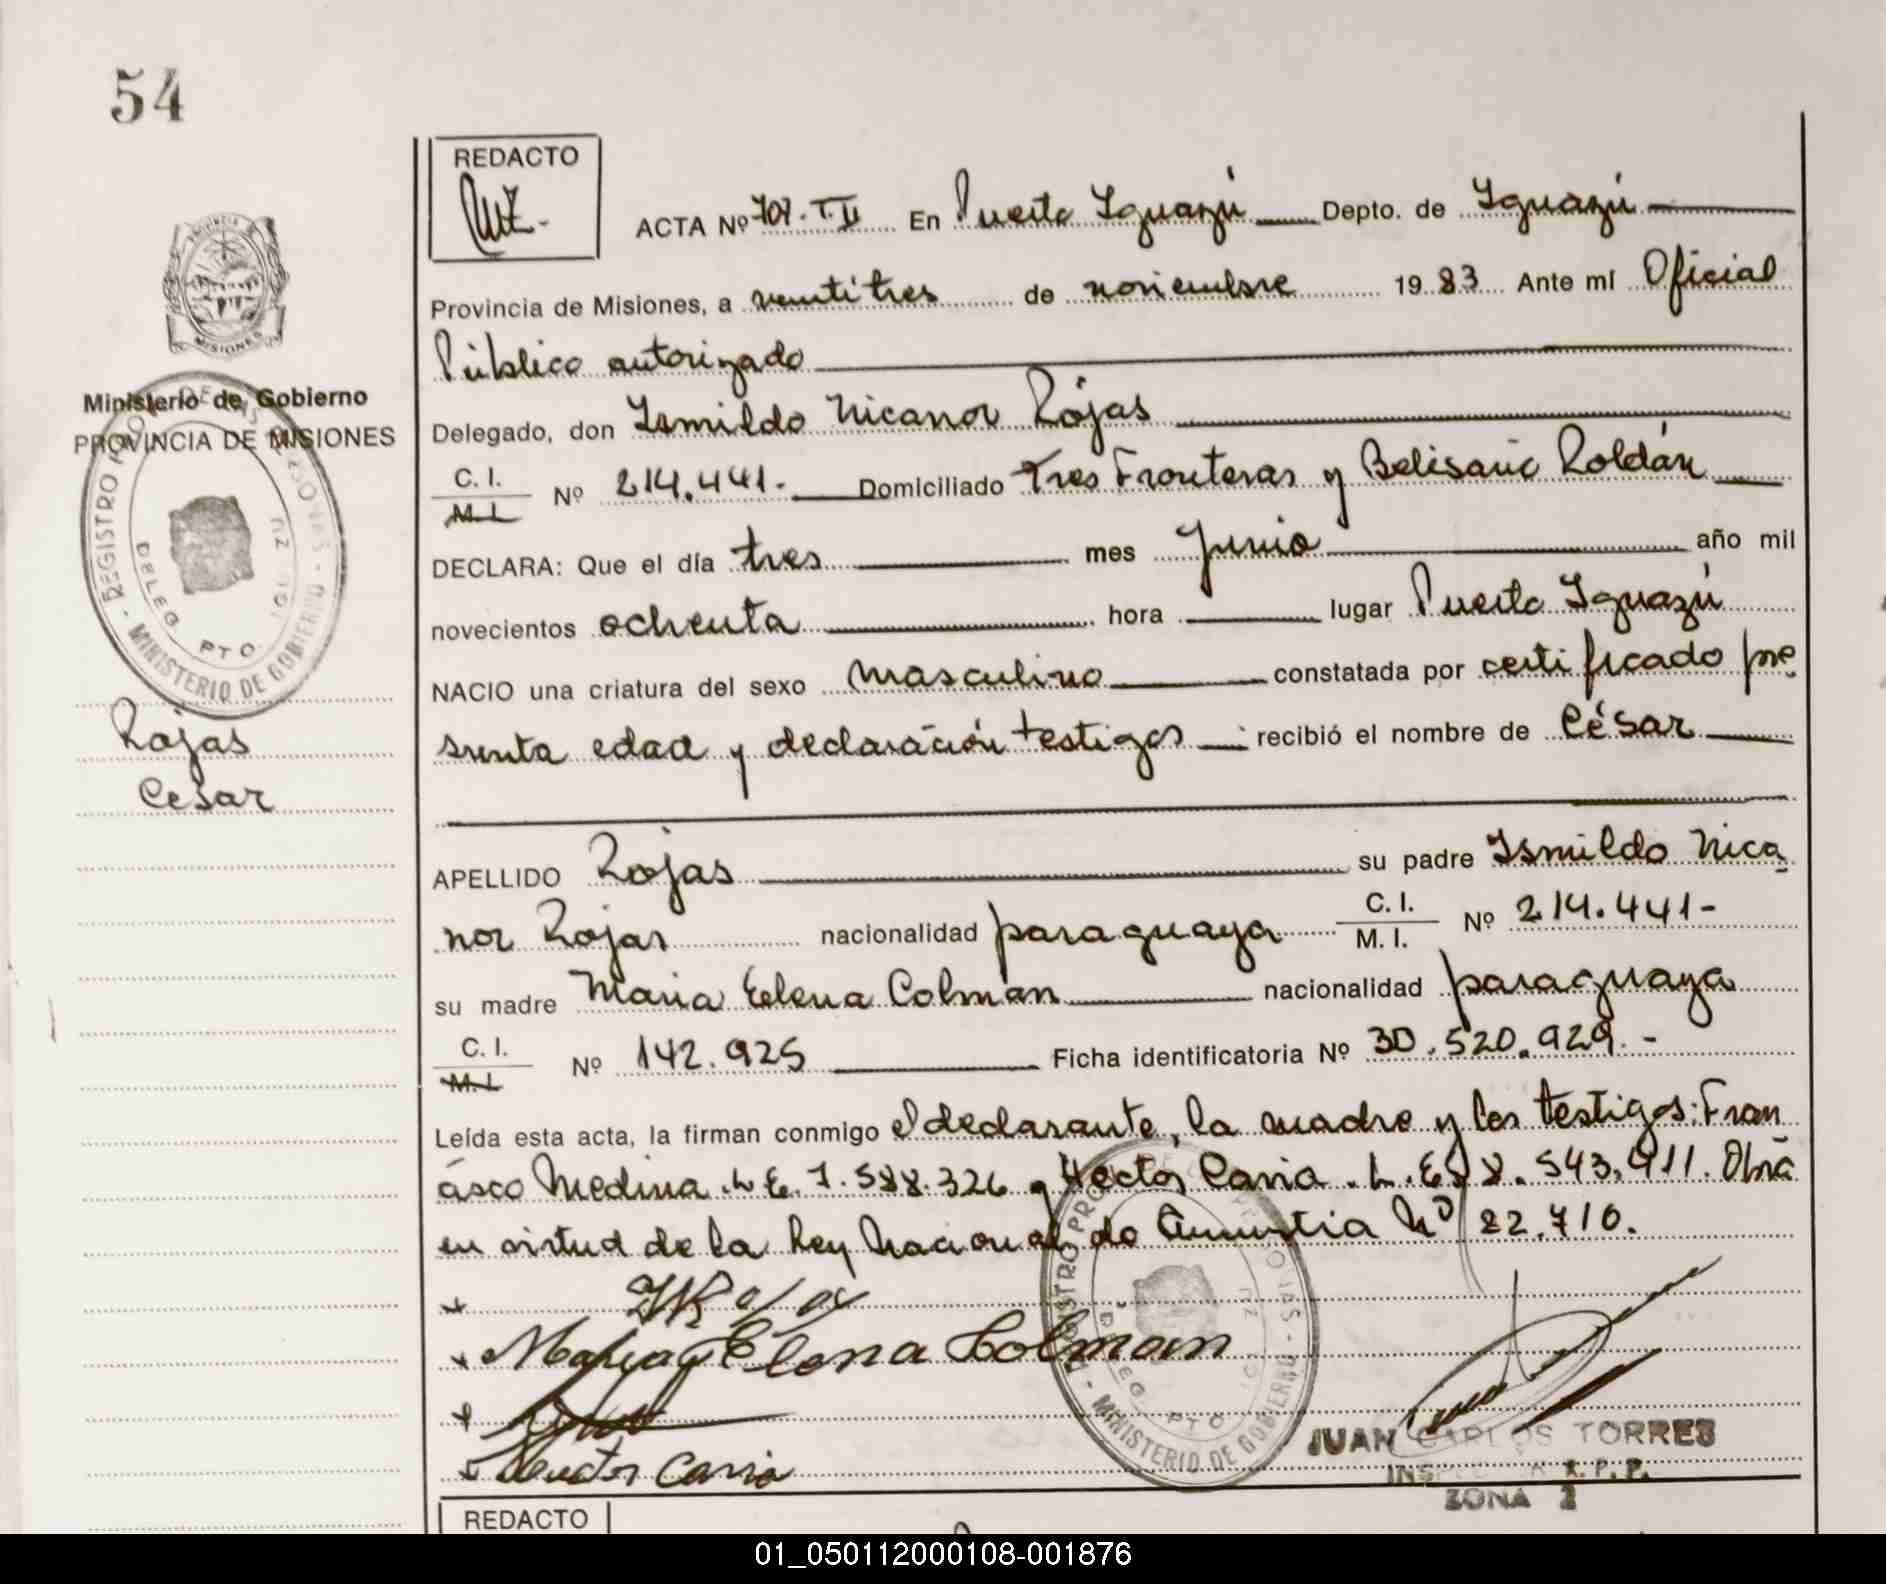 54
REDACTO
ACTA Nº 707. T. II En Puerto Iguazú Depto. de Iguazú
Provincia de Misiones, a veintitres de noviembre 1983 Ante mí Oficial
Público autorizado
Delegado, don Ismildo Nicanor Rojas
C. I. / M. I. Nº 214.441.- Domiciliado Tres Fronteras y Belisario Roldán
DECLARA: Que el día tres mes Junio año mil
novecientos ochenta hora lugar Puerto Iguazú
NACIO una criatura del sexo masculino constatada por certificado pre
sunta edad y declaración testigos recibió el nombre de César
APELLIDO Rojas su padre Ismildo Nica
nor Rojas nacionalidad paraguaya C. I. / M. I. Nº 214.441-
su madre Maria Elena Colman nacionalidad paraguaya
C. I. / M. I. Nº 142.925 Ficha identificatoria Nº 30.520.929.-
Leída esta acta, la firman conmigo el declarante, la madre y los testigos: Fran
cisco Medina. L.E. 7.588.326 y Hector Caria. L.E. 8.543.911. Obra
en virtud de la Ley Nacional de Amnistia Nº 22.710.
Maria Elena Colman
Hector Caria
JUAN CARLOS TORRES
R.P.P.
ZONA 2
REDACTO
PROVINCIA
MISIONES
Ministerio de Gobierno
PROVINCIA DE MISIONES
REGISTRO
DELEG. PTO. IGUAZU
MINISTERIO DE GOBIERNO
Rojas
Cesar
MINISTERIO DE GOBIERNO
01_050112000108-001876